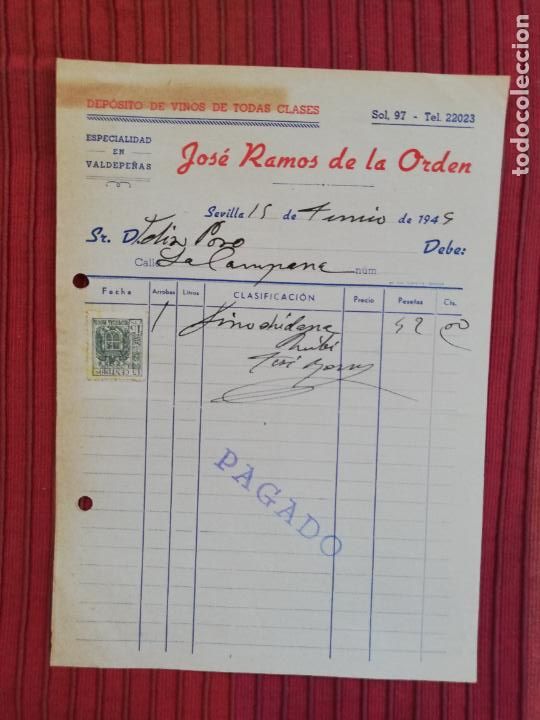 DEPÓSITO DE VINOS DE TODAS CLASES
Sol, 97 - Tel. 22023
ESPECIALIDAD
EN
VALDEPEÑAS
José Ramos de la Orden
Sevilla 15 de Junio de 194
Sr. D. Felix Pozo Debe:
Calle La Campana núm
Fecha Arrobas Litros CLASIFICACIÓN Precio Pesetas Cts.
1 Vino 52 00
Recibí
José Ramos
PAGADO
todocoleccion